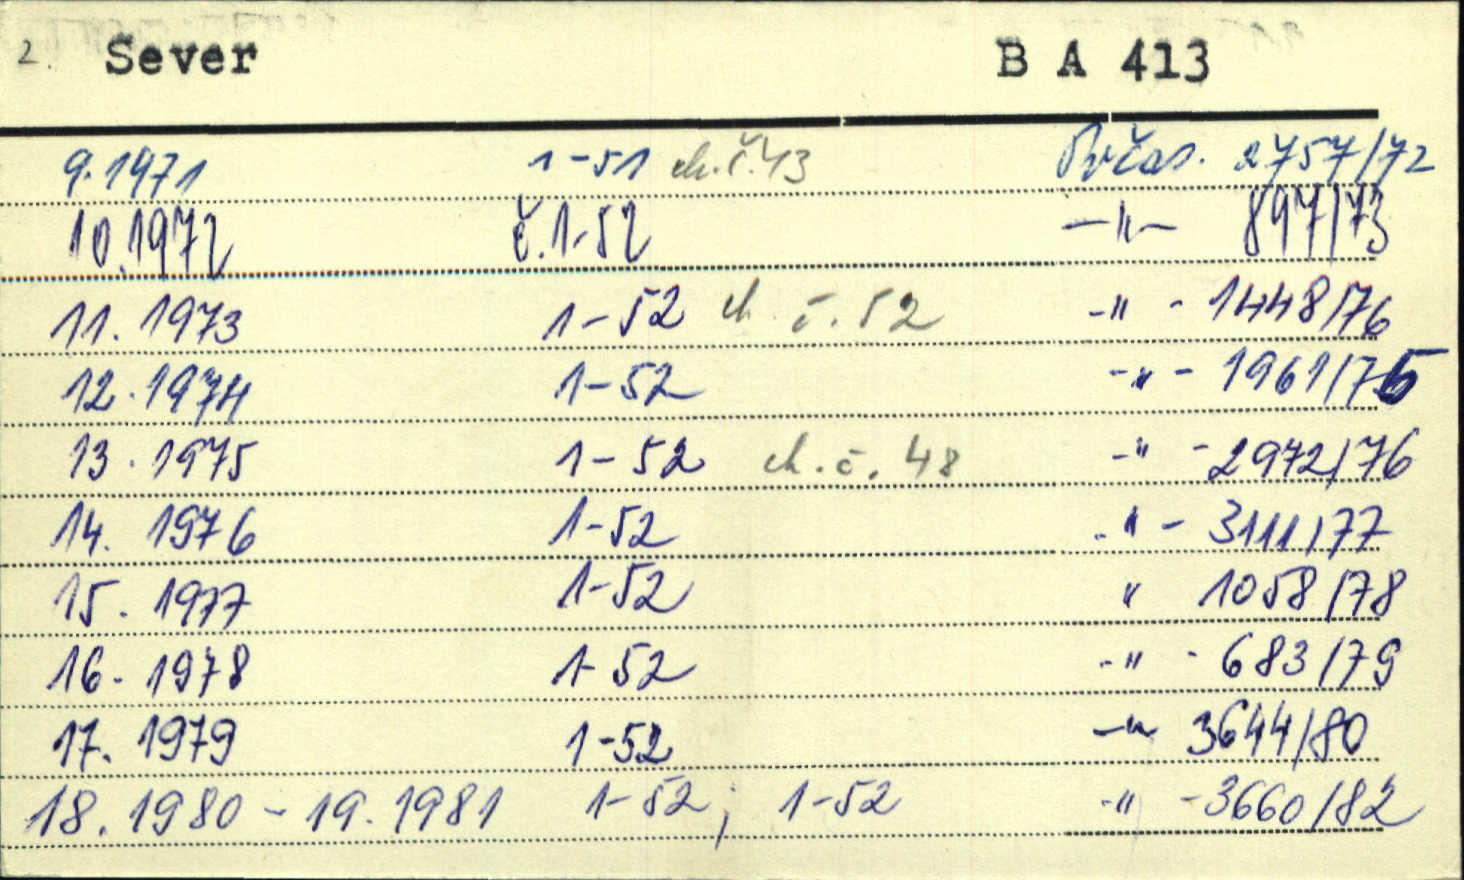 2. Sever B A 413
9.1971 1-51 ch.č.43 Povčas. 2757/72
10.1972 č.1-52 -"- 897/73
11. 1973 1-52 ch. č.52 -"- 1448/76
12.1974 1-52 -"- 1961/75
13.1975 1-52 ch.č. 48 -"- 2972/76
14. 1976 1-52 -"- 3111/77
15. 1977 1-52 " 1058/78
16. 1978 1-52 -"- 683/79
17. 1979 1-52 -"- 3644/80
18.1980 - 19.1981 1-52; 1-52 -"- 3660/82